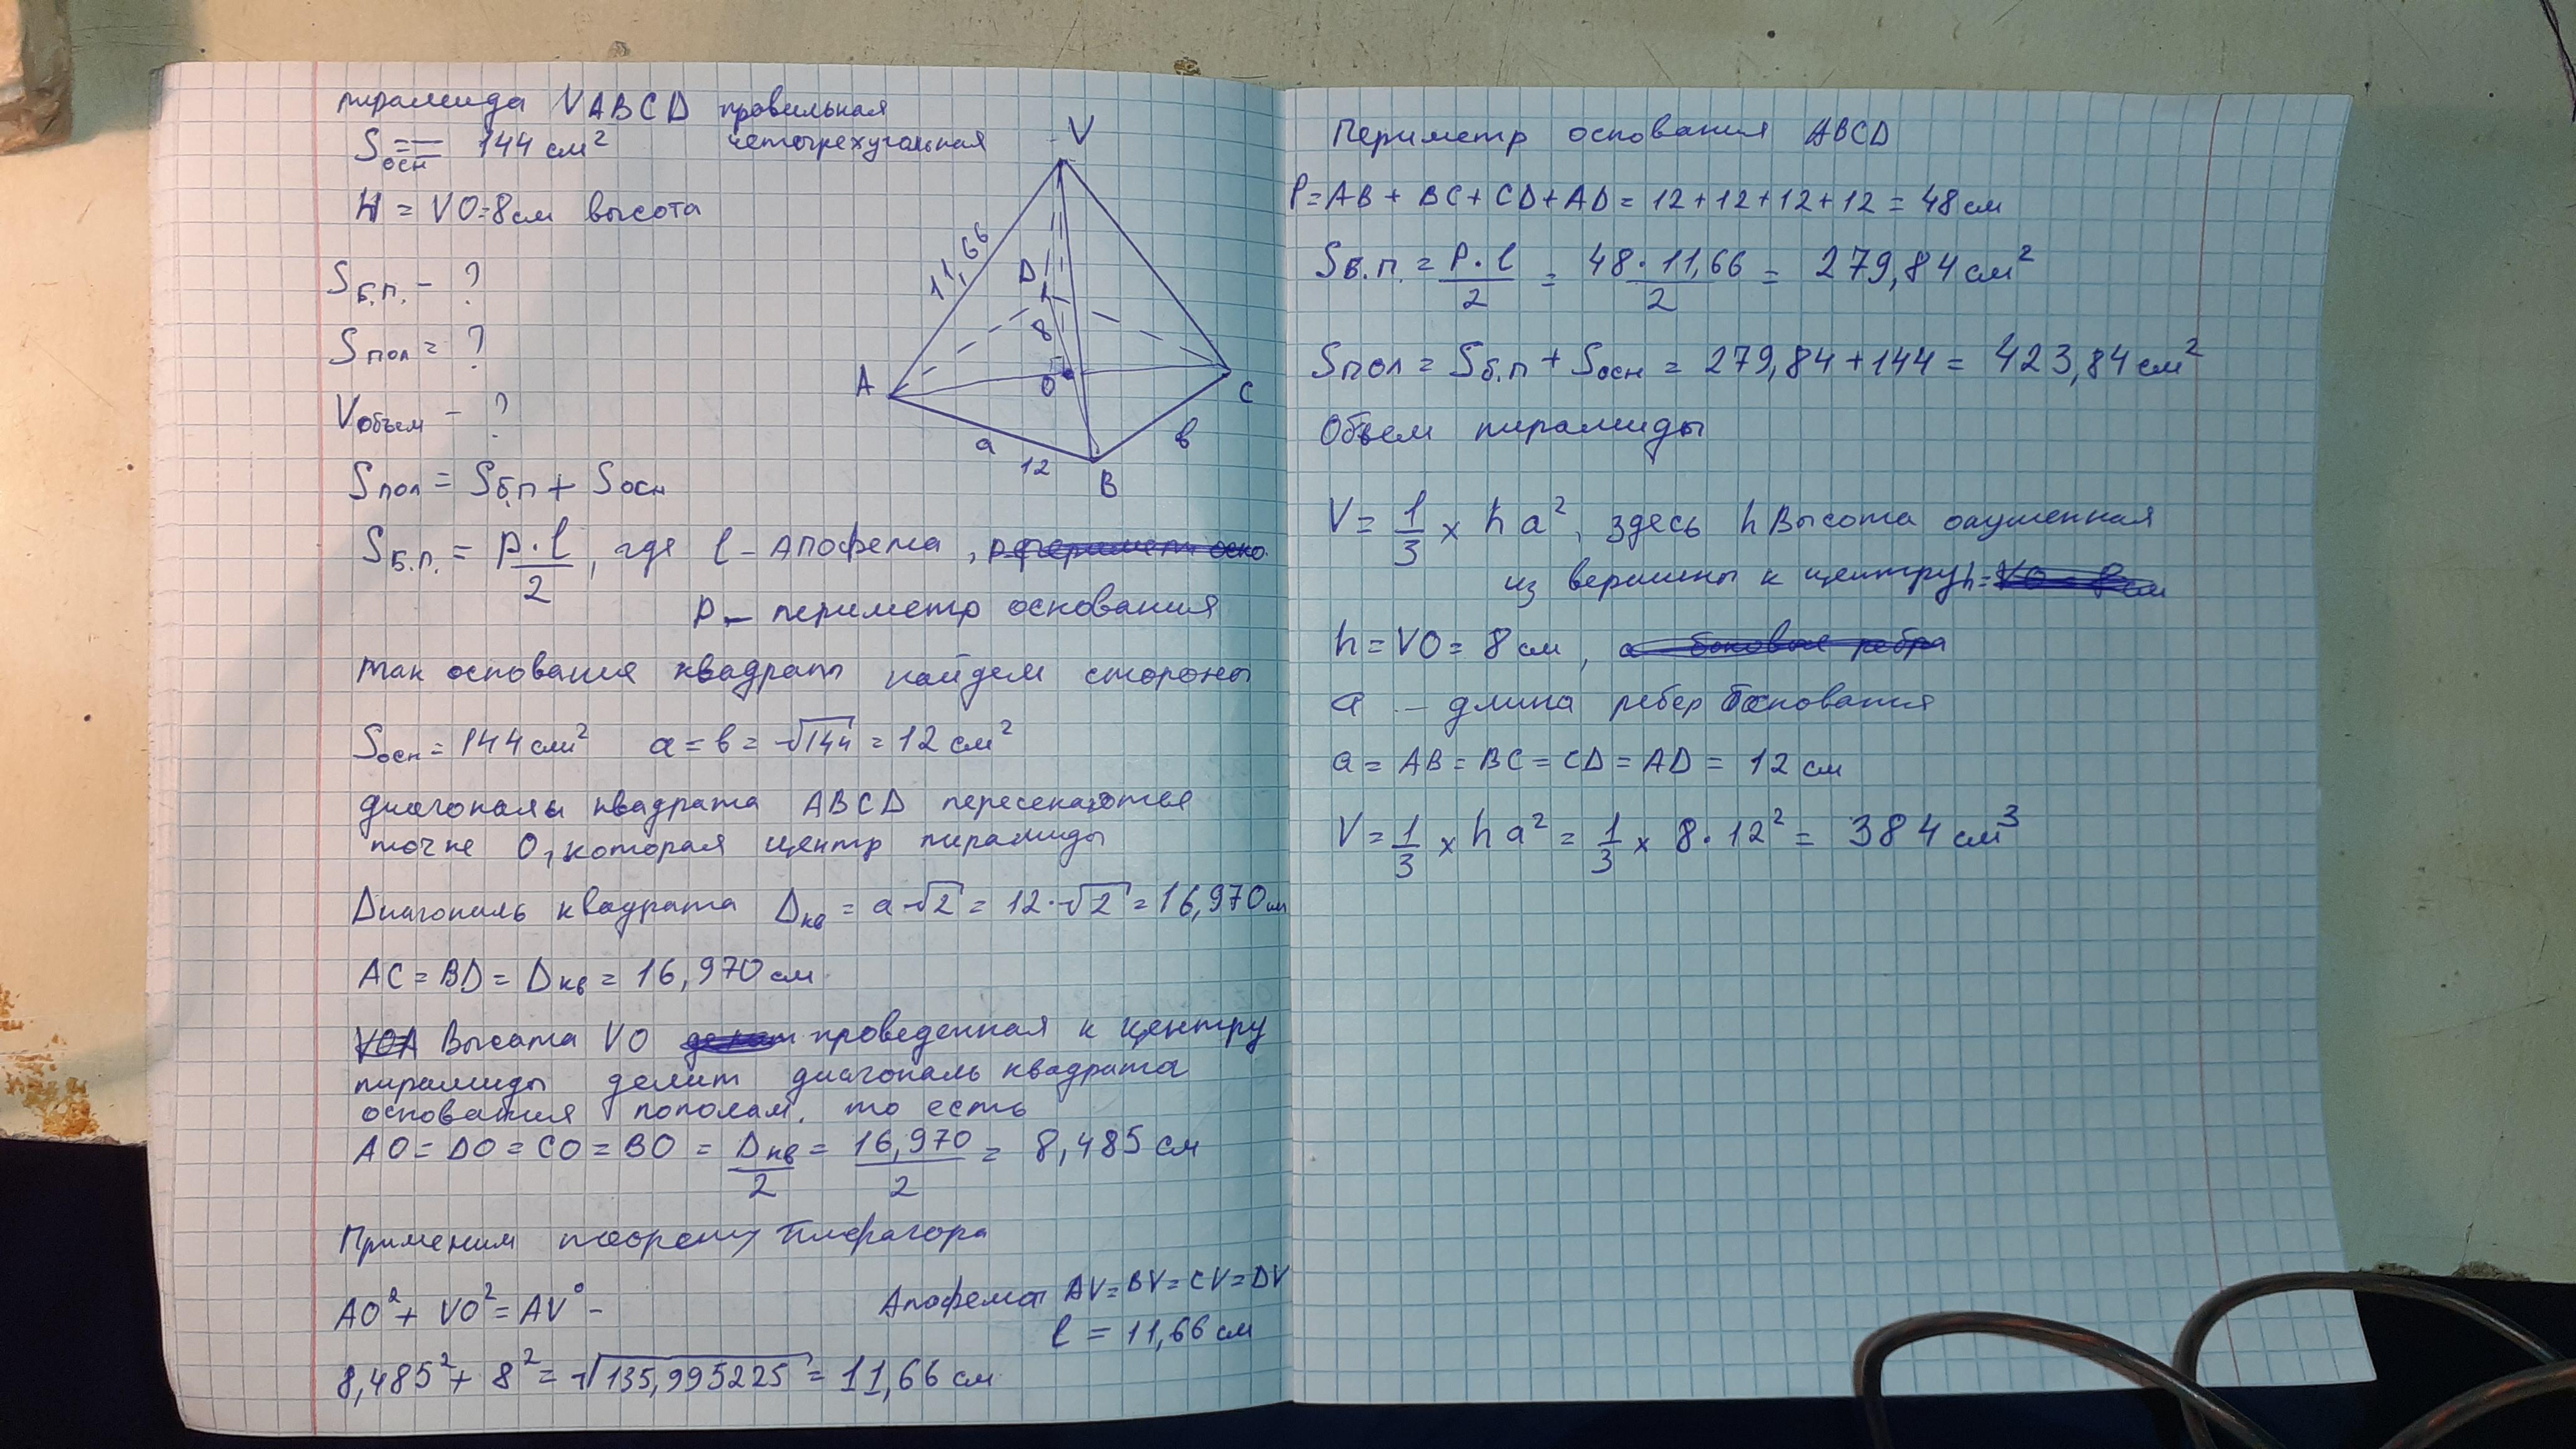 пирамида VABCD правильная
четырехугольная
Sосн = 144 см²
H = VO=8см высота
Sб.п. - ?
Sпол = ?
Vобъем - ?
V
11,66
D
8
A
O
C
a
12
B
в
Sпол = Sб.п + Sосн
Sб.п. = p·l/2, где l - апофема,
p - периметр основания
так основания квадрат найдем стороны
Sосн = 144 см² a = в = √144 = 12 см²
диагонали квадрата ABCD пересекаются
точке O, которая центр пирамиды
Диагональ квадрата Dкв = a√2 = 12·√2 = 16,970 см
AC = BD = Dкв = 16,970 см
Высота VO проведенная к центру
пирамиды делит диагональ квадрата
основания пополам. то есть
AO = DO = CO = BO = Dкв/2 = 16,970/2 = 8,485 см
Применим теорему Пифагора
AO² + VO² = AV° -
Апофема AV = BV = CV = DV
l = 11,66 см
8,485² + 8² = √135,995225 = 11,66 см
Периметр основания ABCD
P = AB + BC + CD + AD = 12 + 12 + 12 + 12 = 48 см
Sб.п. = P·l/2 = 48·11,66/2 = 279,84 см²
Sпол = Sб.п + Sосн = 279,84 + 144 = 423,84 см²
Объем пирамиды
V = 1/3 × h a², здесь h высота опущенная
из вершины к центру h=
h = VO = 8 см,
a - длина ребер основания
a = AB = BC = CD = AD = 12 см
V = 1/3 × h a² = 1/3 × 8·12² = 384 см³